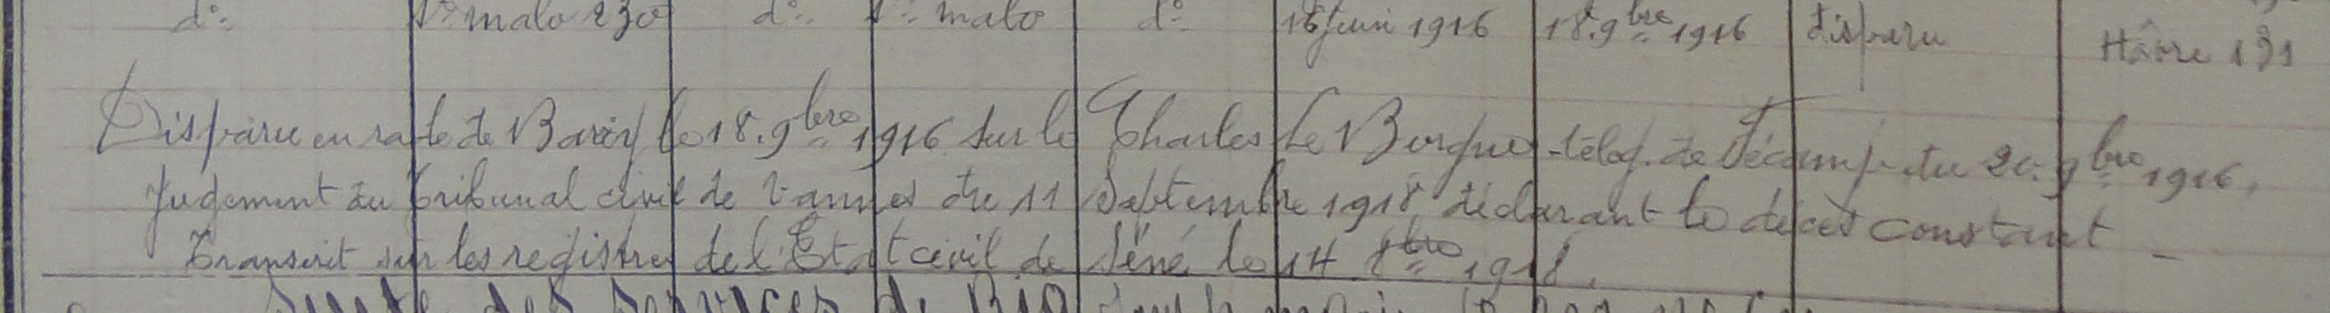 do- St malo 230 do- St malo do- 16 Juin 1916 18. 9bre 1916 disparu Hâvre 191
Disparu en rade de le 18. 9bre 1916 sur le Charles Le Borgne - télég. de Fécamp du 20. 9bre 1916,
Jugement du Tribunal civil de Vannes du 11 Septembre 1918 déclarant le décès constant -
Transcrit sur les registres de l'Etat civil de Séné le 14 8bre 1918.
Suite des Services